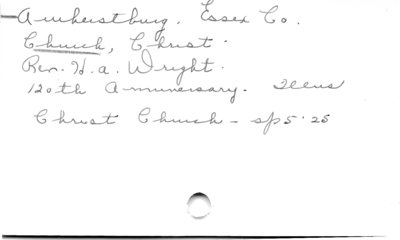 Amherstburg. Essex Co.
Church, Christ.
Rev. H. A. Wright.
120th Anniversary. Illus
Christ Church - sp 5 '25